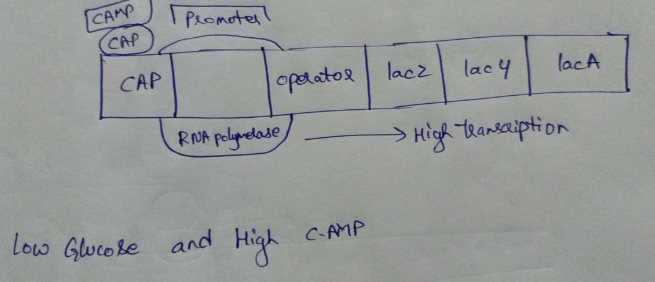 CAMP
Promoter
CAP
CAP operator lacz lacy lacA
RNA polymerase → High transcription
Low Glucose and High C-AMP